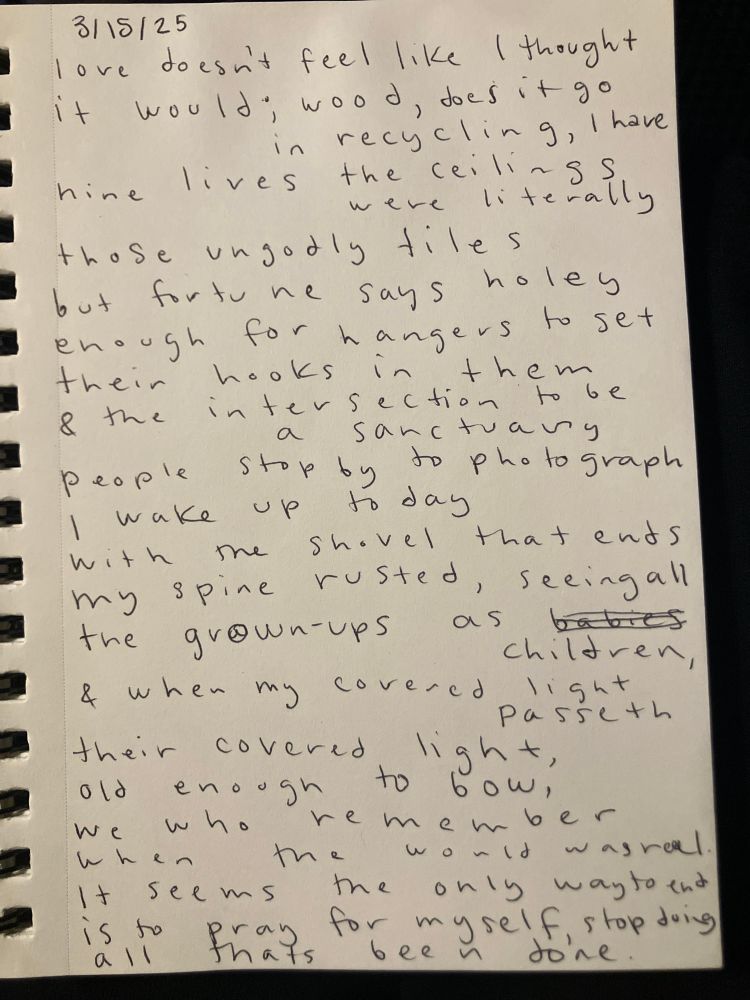 3/15/25
love doesn't feel like I thought
it would; wood, does it go
in recycling, I have
nine lives the ceilings
were literally
those ungodly tiles
but fortune says holey
enough for hangers to set
their hooks in them
& the intersection to be
a sanctuary
people stop by to photograph
I wake up today
with the shovel that ends
my spine rusted, seeing all
the grown-ups as babies
children,
& when my covered light
passeth
their covered light,
old enough to bow,
we who remember
when the world was real.
It seems the only way to end
is to pray for myself, stop doing
all thats been done.